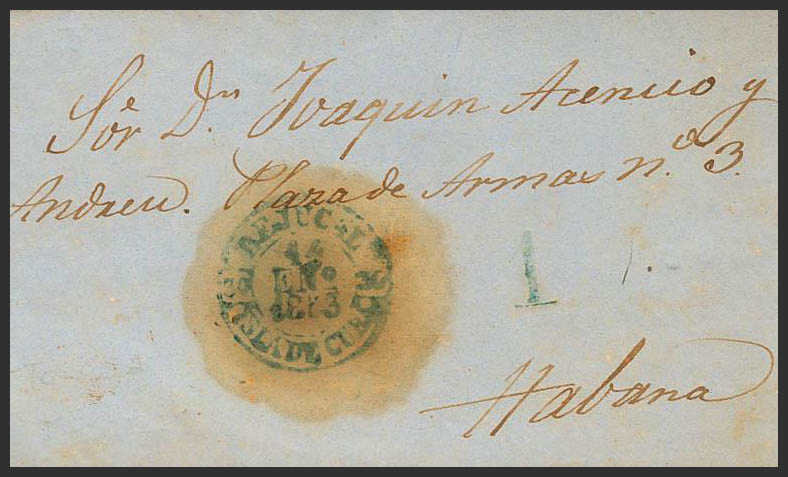 Sor. Dn. Joaquin Acencio y
Andreu. Plaza de Armas n.o 3.
BEJUCAL
14
ENo
ISLA DE CUBA
1
Habana